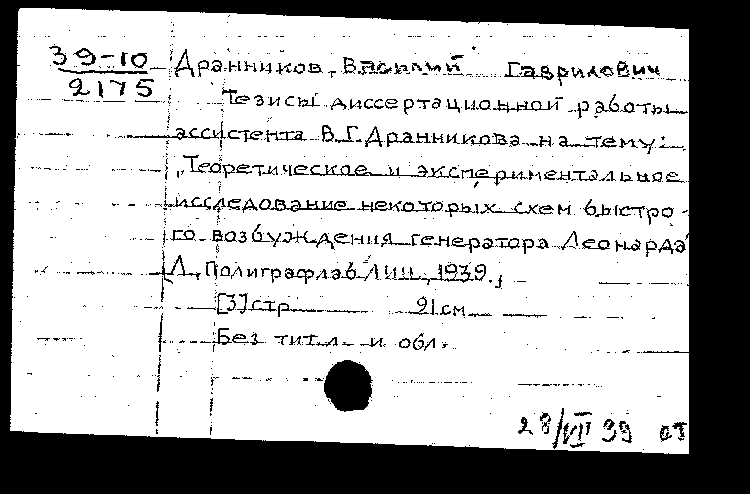 39-10
2175
Дранников, Василий Гаврилович
Тезисы диссертационной работы
ассистента В.Г. Дранникова на тему:
"Теоретическое и экспериментальное
исследование некоторых схем быстро-
го возбуждения генератора Леонарда"
Л., Полиграфлаб ЛИИ, 1939.,
[3] стр. 21 см
Без тит. л. и обл.
28/VII 39